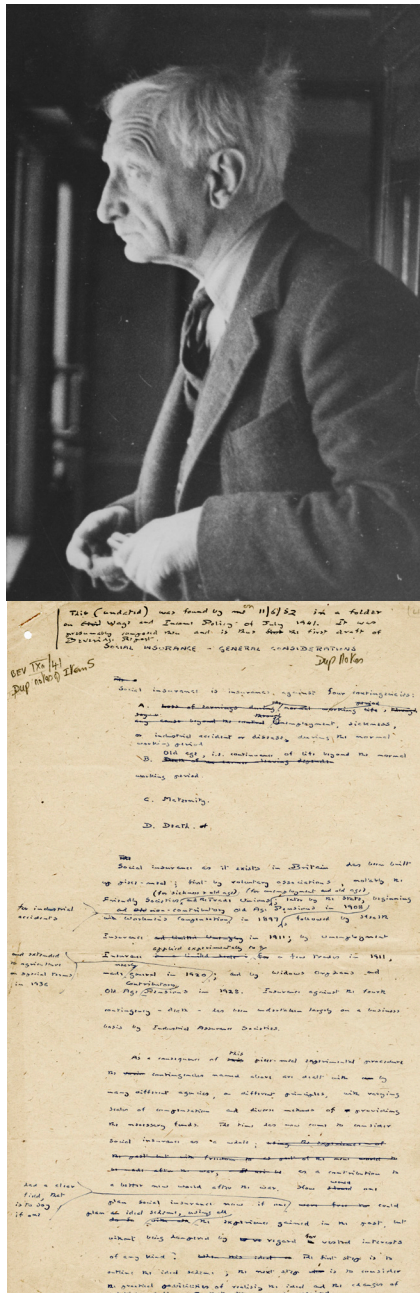 This (undated) was found by me on 11/6/52 in a folder
on Wage and Income Policy of July 1941. It was
presumably composed then and is thus the first draft of
Beveridge Report.
SOCIAL INSURANCE - GENERAL CONSIDERATIONS
Dup Notes
BEV IXa/41
Item 5
Social insurance is insurance against four contingencies:
A. Loss of earnings during normal working life, through
unemployment, sickness,
or industrial accident or disease, during the normal
working period
Old age, i.e. continuance of life beyond the normal
B.
working period
C. Maternity.
D. Death.
Social Insurance as it exists in Britain has been built
up piece-meal; first by voluntary associations, notably the
(for sickness & old age) (for unemployment and old age)
Friendly Societies and Trade Unions; later by the State, beginning
for industrial
accidents
non-contributory Old Age Pensions in 1908,
with Workmen's Compensation in 1897, followed by Health
Insurance in 1911; by Unemployment
applied experimentally to a
Insurance few trades in 1911,
and extended
to agriculture
in 1936
made general in 1920; and by Widows Orphans and
Contributory
Old Age Pensions in 1925. Insurance against the fourth
contingency - death - has been undertaken largely on a business
basis by Industrial Assurance Societies.
As a consequence of this piece-meal experimental procedure
the contingencies named above are dealt with by
many different agencies, on different principles, with varying
scales of compensation and diverse methods of providing
the necessary funds. The time has now come to consider
social insurance as a whole,
as a contribution to
a better new world after the war. How would one
had a clear
field, that
is to say
if one
plan social insurance now if one could
plan an ideal scheme, using all
the experience gained in the past, but
without being hampered by regard for vested interests
of any kind? The first step is to
outline the ideal scheme; the next step is to consider
the practical possibilities of realising the ideal and the changes of